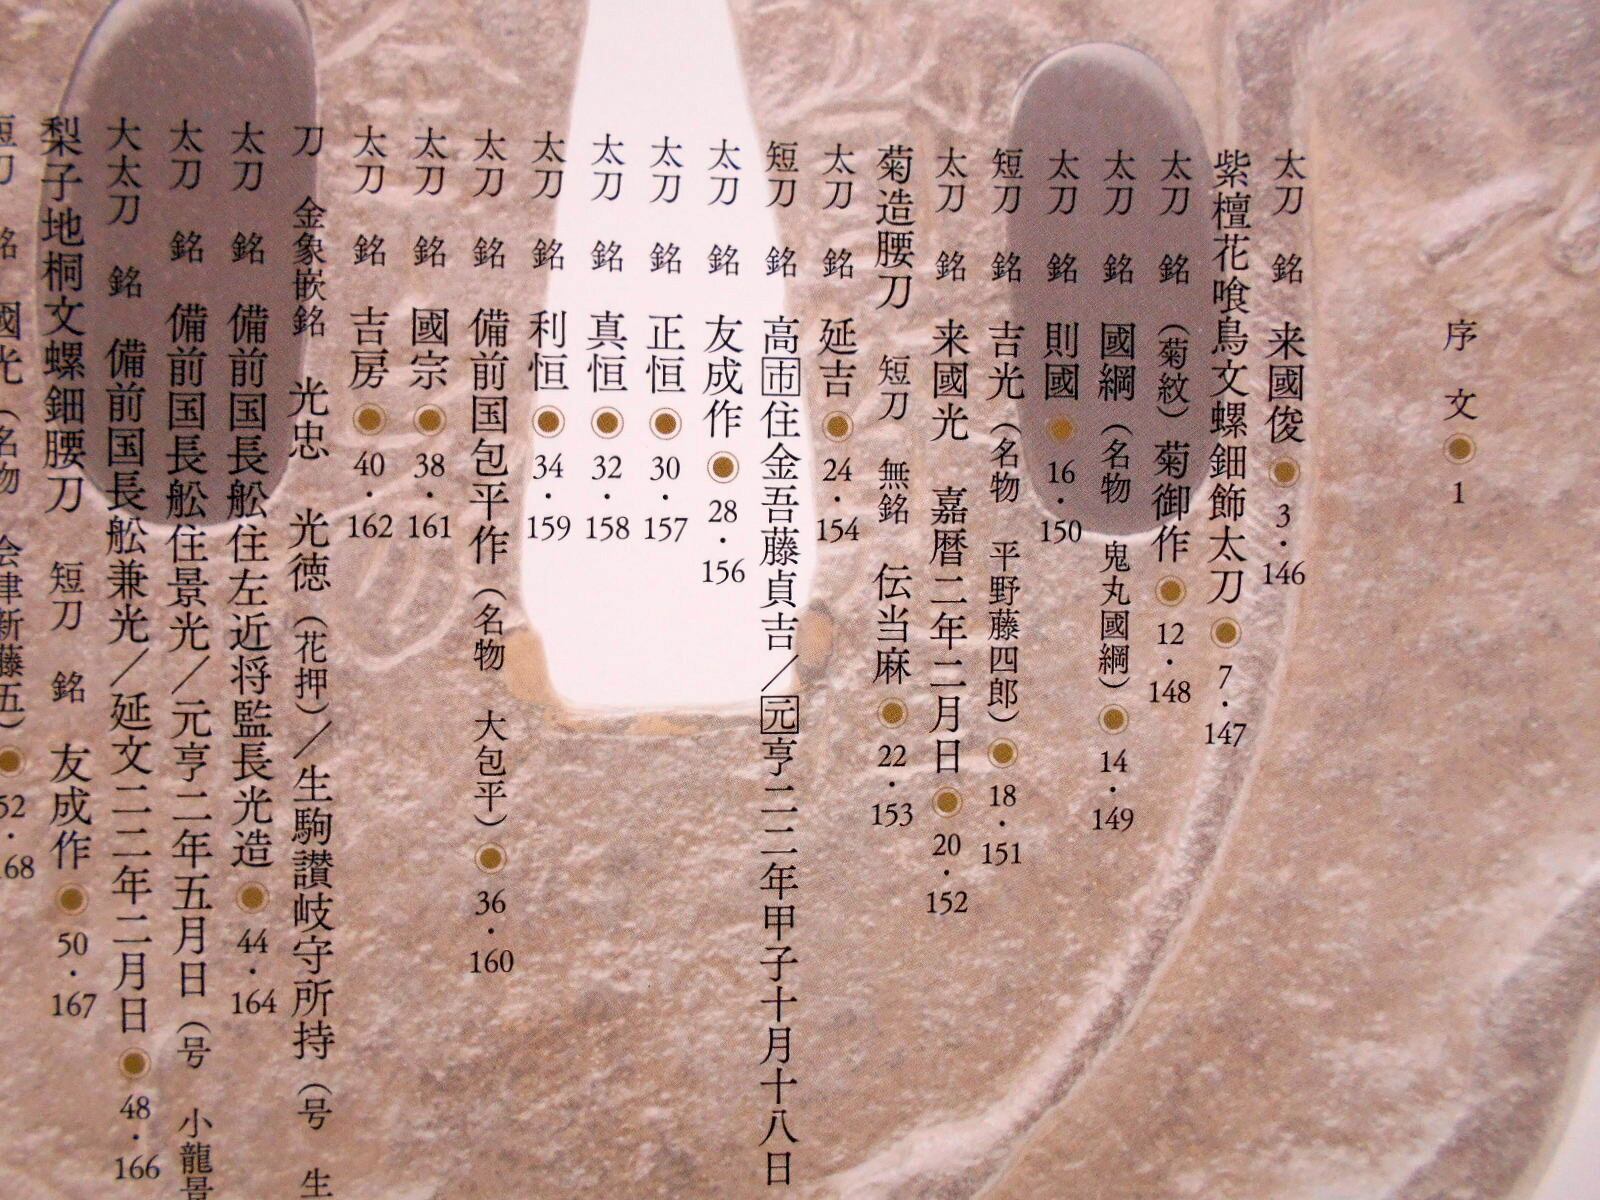 序文 ◉ 1
太刀 銘 来國俊 ◉ 3・146
紫檀花喰鳥文螺鈿飾太刀 ◉ 7・147
太刀 銘 (菊紋) 菊御作 ◉ 12・148
太刀 銘 國綱 (名物 鬼丸國綱) ◉ 14・149
太刀 銘 則國 ◉ 16・150
短刀 銘 吉光 (名物 平野藤四郎) ◉ 18・151
太刀 銘 来國光 嘉暦二年二月日 ◉ 20・152
菊造腰刀 短刀 無銘 伝当麻 ◉ 22・153
太刀 銘 延吉 ◉ 24・154
短刀 銘 高市住金吾藤貞吉／元亨二二年甲子十月十八日
太刀 銘 友成作 ◉ 28・156
太刀 銘 正恒 ◉ 30・157
太刀 銘 真恒 ◉ 32・158
太刀 銘 利恒 ◉ 34・159
太刀 銘 備前国包平作 (名物 大包平) ◉ 36・160
太刀 銘 國宗 ◉ 38・161
太刀 銘 吉房 ◉ 40・162
刀 金象嵌銘 光忠 光徳 (花押)／生駒讃岐守所持 (号 生
太刀 銘 備前国長舩住左近将監長光造 ◉ 44・164
太刀 銘 備前国長舩住景光／元亨二年五月日 (号 小龍景
大太刀 銘 備前国長舩兼光／延文二二年二月日 ◉ 48・166
梨子地桐文螺鈿腰刀 短刀 銘 友成作 ◉ 50・167
短刀 銘 國光 (名物 会津新藤五) ◉ 52・168